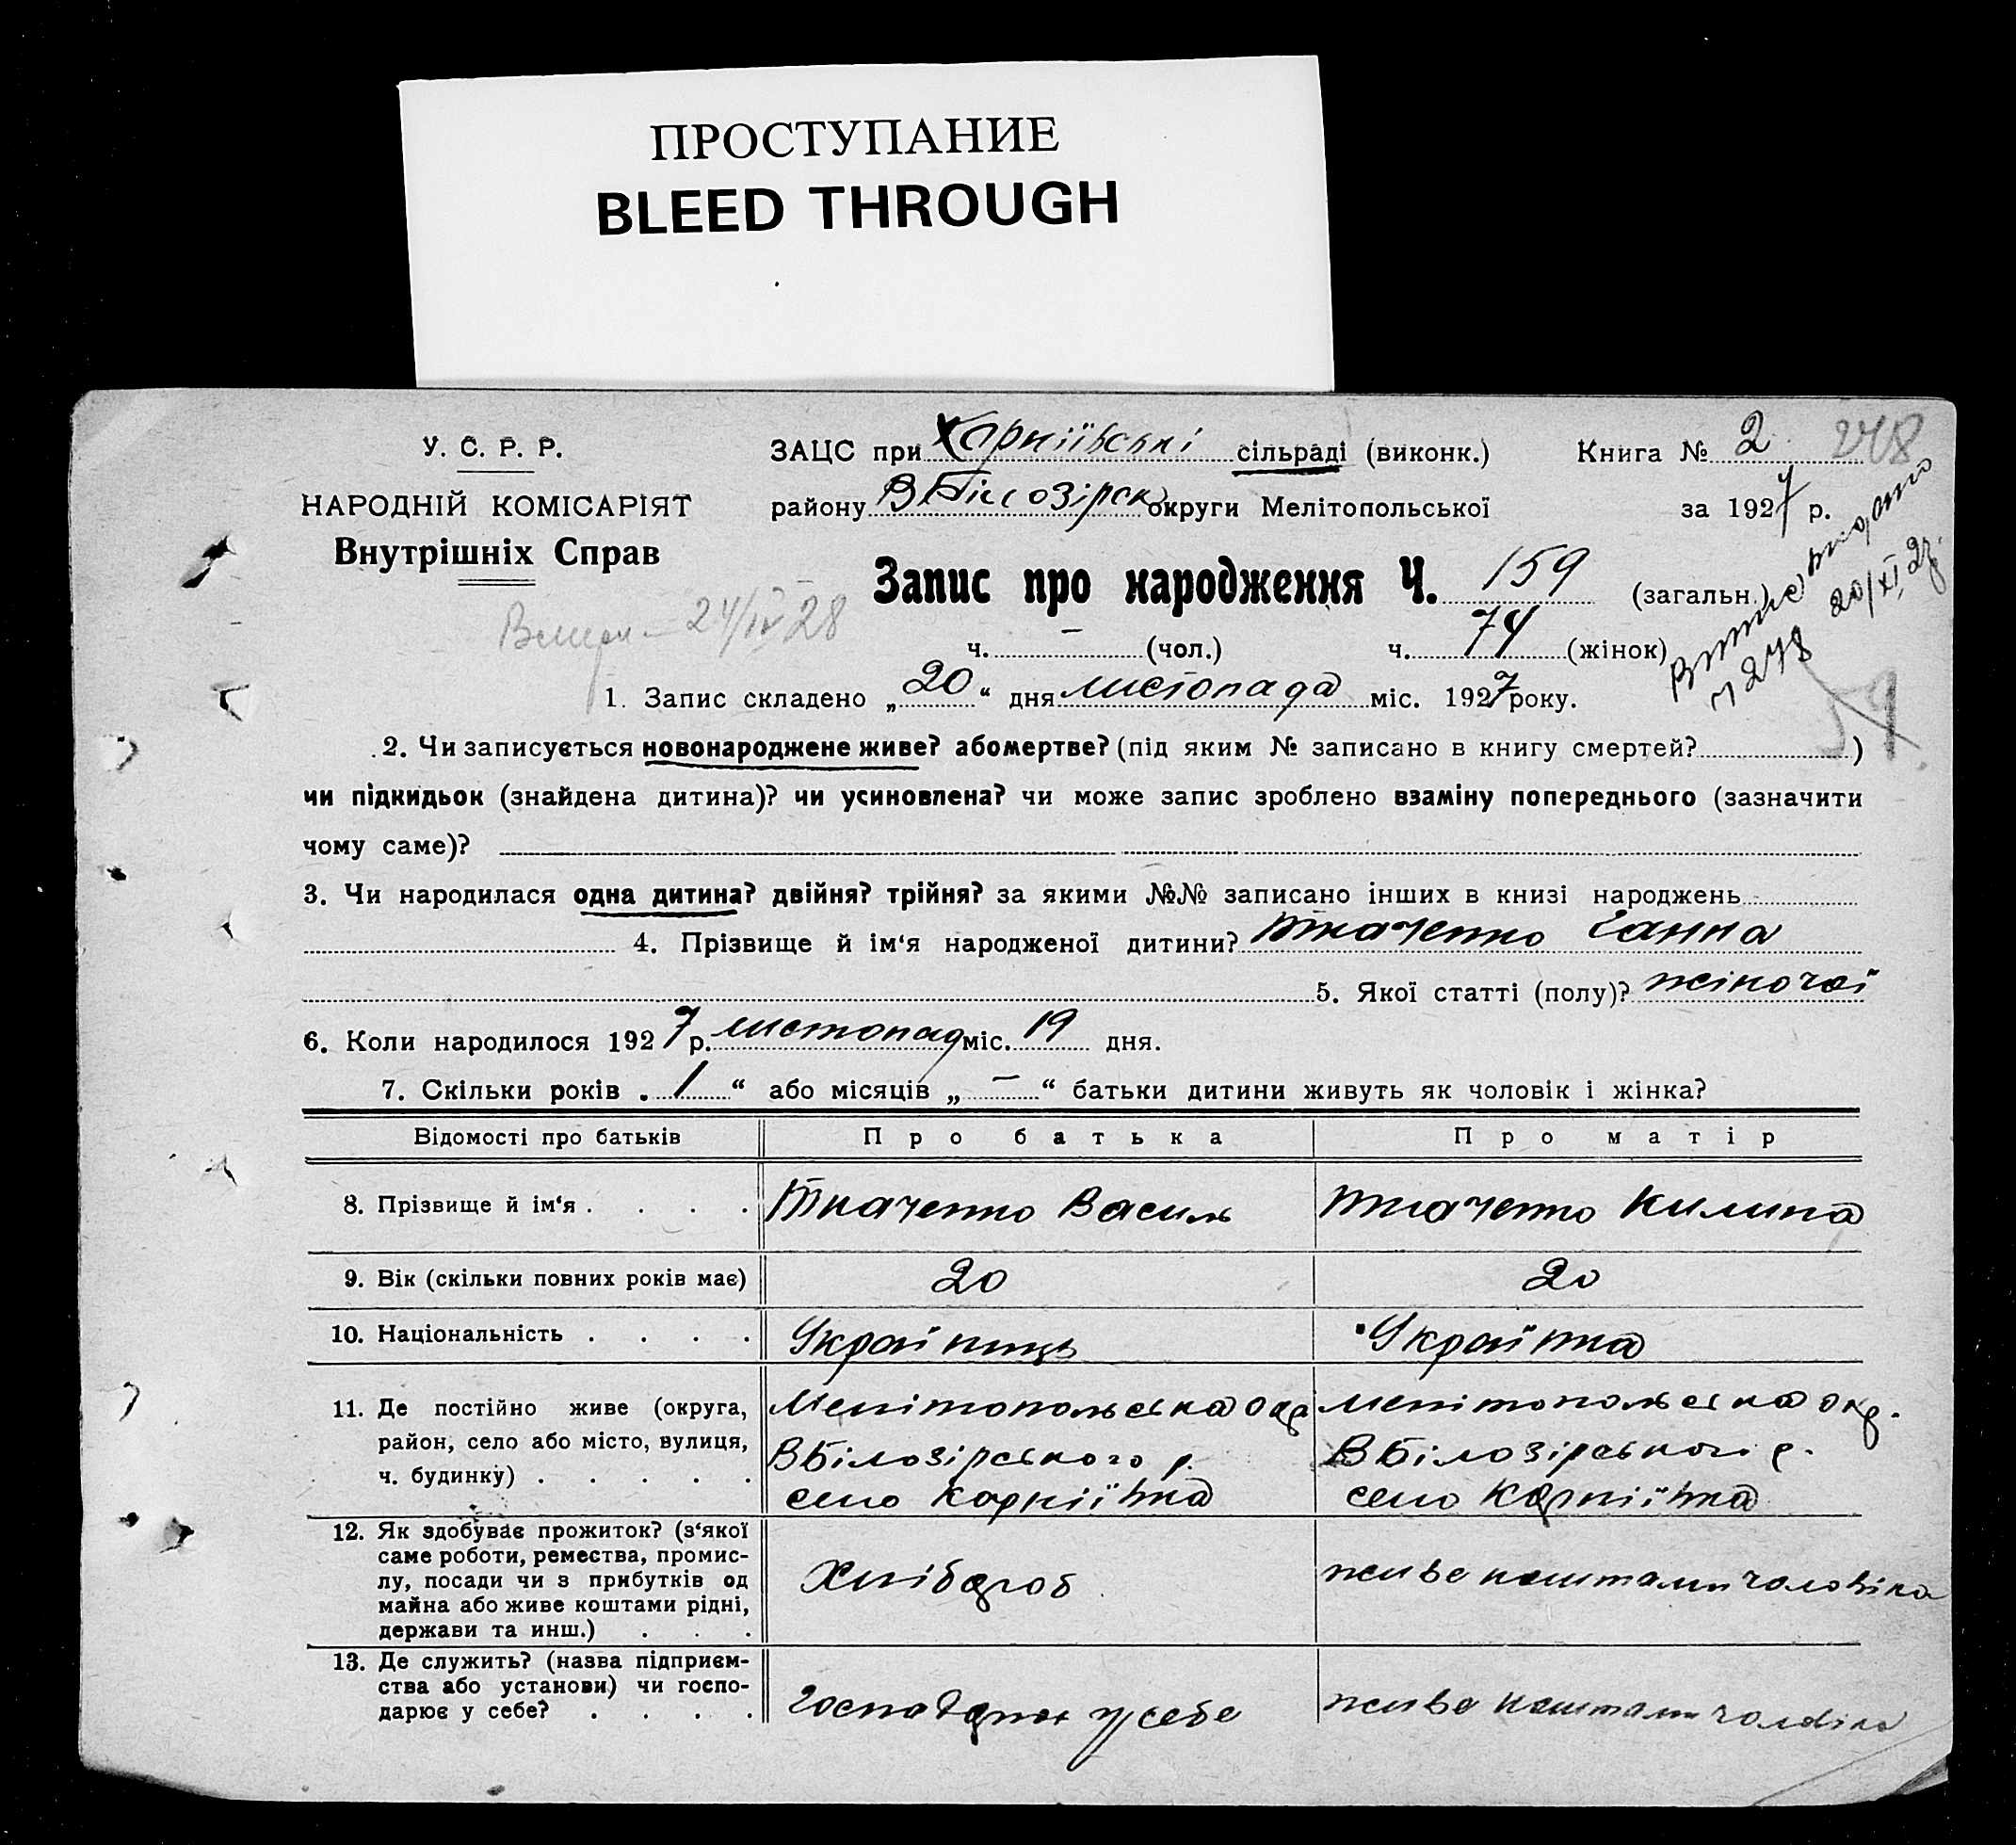 ПРОСТУПАНИЕ
BLEED THROUGH
У. С. Р. Р.
НАРОДНІЙ КОМІСАРІЯТ
Внутрішніх Справ
ЗАЦС при Карніївські сільраді (виконк.)
Книга № 2 248
району ВБілозірск округи Мелітопольської
за 1927 р.
Запис про народження Ч. 159 (загальн.)
ч. – (чол.) ч. 74 (жінок)
24/IV 28
Витяг видано
ч 248 20/XI 27.
1. Запис складено „20“ дня листопада міс. 1927 року.
2. Чи записується новонароджене живе? або мертве? (під яким № записано в книгу смертей? )
чи підкидьок (знайдена дитина)? чи усиновлена? чи може запис зроблено взаміну попереднього (зазначити
чому саме)?
3. Чи народилася одна дитина? двійня? трійня? за якими №№ записано інших в книзі народжень
4. Прізвище й ім‘я народженої дитини? Ткаченко Ганна
5. Якої статті (полу)? жіночої
6. Коли народилося 1927 р. листопад міс. 19 дня.
7. Скільки років „1“ або місяців „–“ батьки дитини живуть як чоловік і жінка?
Відомості про батьків Про батька Про матір
8. Прізвище й ім‘я . . . . Ткаченко Василь Ткаченко Килина
9. Вік (скільки повних років має) 20 20
10. Національність . . . . Українець Українка
11. Де постійно живе (округа,
район, село або місто, вулиця,
ч. будинку) . . . . .
Мелітопольська окр
ВБілозірського р.
село Карніївка
Мелітопольська окр.
ВБілозірського р.
село Карніївка
12. Як здобуває прожиток? (з‘якої
саме роботи, ремества, промис-
лу, посади чи з прибутків од
майна або живе коштами рідні,
держави та инш.) . . .
Хлібороб
живе коштами чоловіка
13. Де служить? (назва підприєм-
ства або установи) чи госпо-
дарює у себе? . . . .
господарює у себе
живе коштами чоловіка